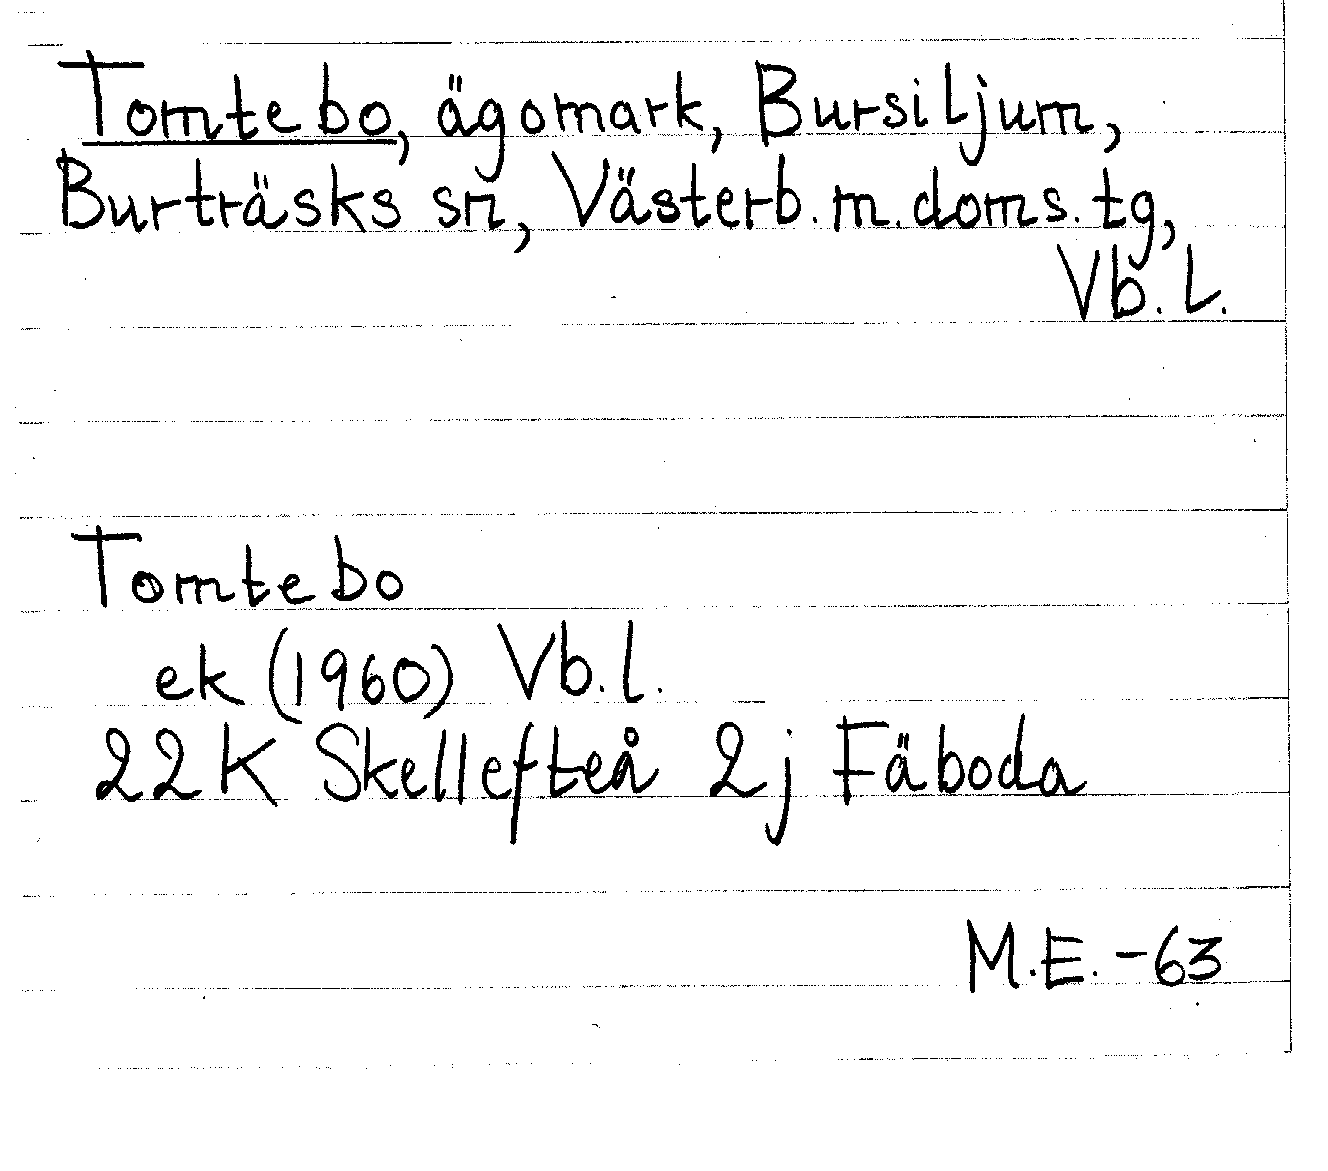 Tomtebo, ägomark, Bursiljum,
Burträsks sn, Västerb.m.doms.tg,
Vb.l.
Tomtebo
ek (1960) Vb.l.
22K Skellefteå 2j Fäboda
M.E.-63